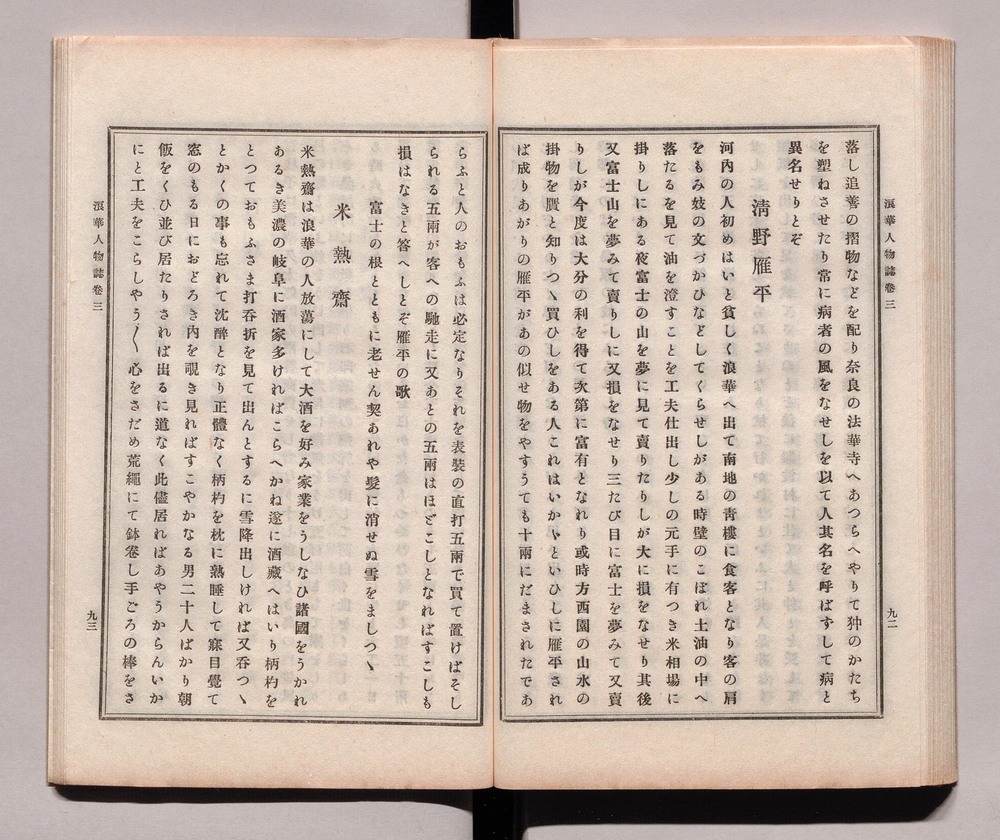 浪華人物誌卷三
九二
落し追善の摺物などを配り奈良の法華寺へあつらへやりて狆のかたち
を塑ねさせたり常に病者の風をなせしを以て人其名を呼ばずして病と
異名せりとぞ
淸野雁平
河內の人初めはいと貧しく浪華へ出て南地の靑樓に食客となり客の肩
をもみ妓の文づかひなどしてくらせしがある時壁のこぼれ土油の中へ
落たるを見て油を澄すことを工夫仕出し少しの元手に有つき米相場に
掛りしにある夜富士の山を夢に見て賣りたりしが大に損をなせり其後
又富士山を夢みて賣りしに又損をなせり三たび目に富士を夢みて又賣
りしが今度は大分の利を得て次第に富有となれり或時方西園の山水の
掛物を贋と知りつゝ買ひしをある人これはいかゞといひしに雁平され
ば成りあがりの雁平があの似せ物をやすうても十兩にだまされたであ
らふと人のおもふは必定なりそれを表裝の直打五兩で買て置けばそし
られる五兩が客への馳走に又あとの五兩はほどこしとなればすこしも
損はなきと答へしとぞ雁平の歌
富士の根とともに老せん契あれや髮に消せぬ雪をましつゝ
米熱齋
米熱齋は浪華の人放蕩にして大酒を好み家業をうしなひ諸國をうかれ
あるき美濃の岐阜に酒家多ければこらへかね遂に酒藏へはいり柄杓を
とつておもふさま打呑折を見て出んとするに雪降出しければ又呑つゝ
とかくの事も忘れて沈醉となり正體なく柄杓を枕に熟睡して寐目覺て
窓のもる日におどろき內を覗き見ればすこやかなる男二十人ばかり朝
飯をくひ並び居たりされば出るに道なく此儘居ればあやうからんいか
にと工夫をこらしやう〳〵心をさだめ荒繩にて鉢卷し手ごろの棒をさ
浪華人物誌卷三
九三